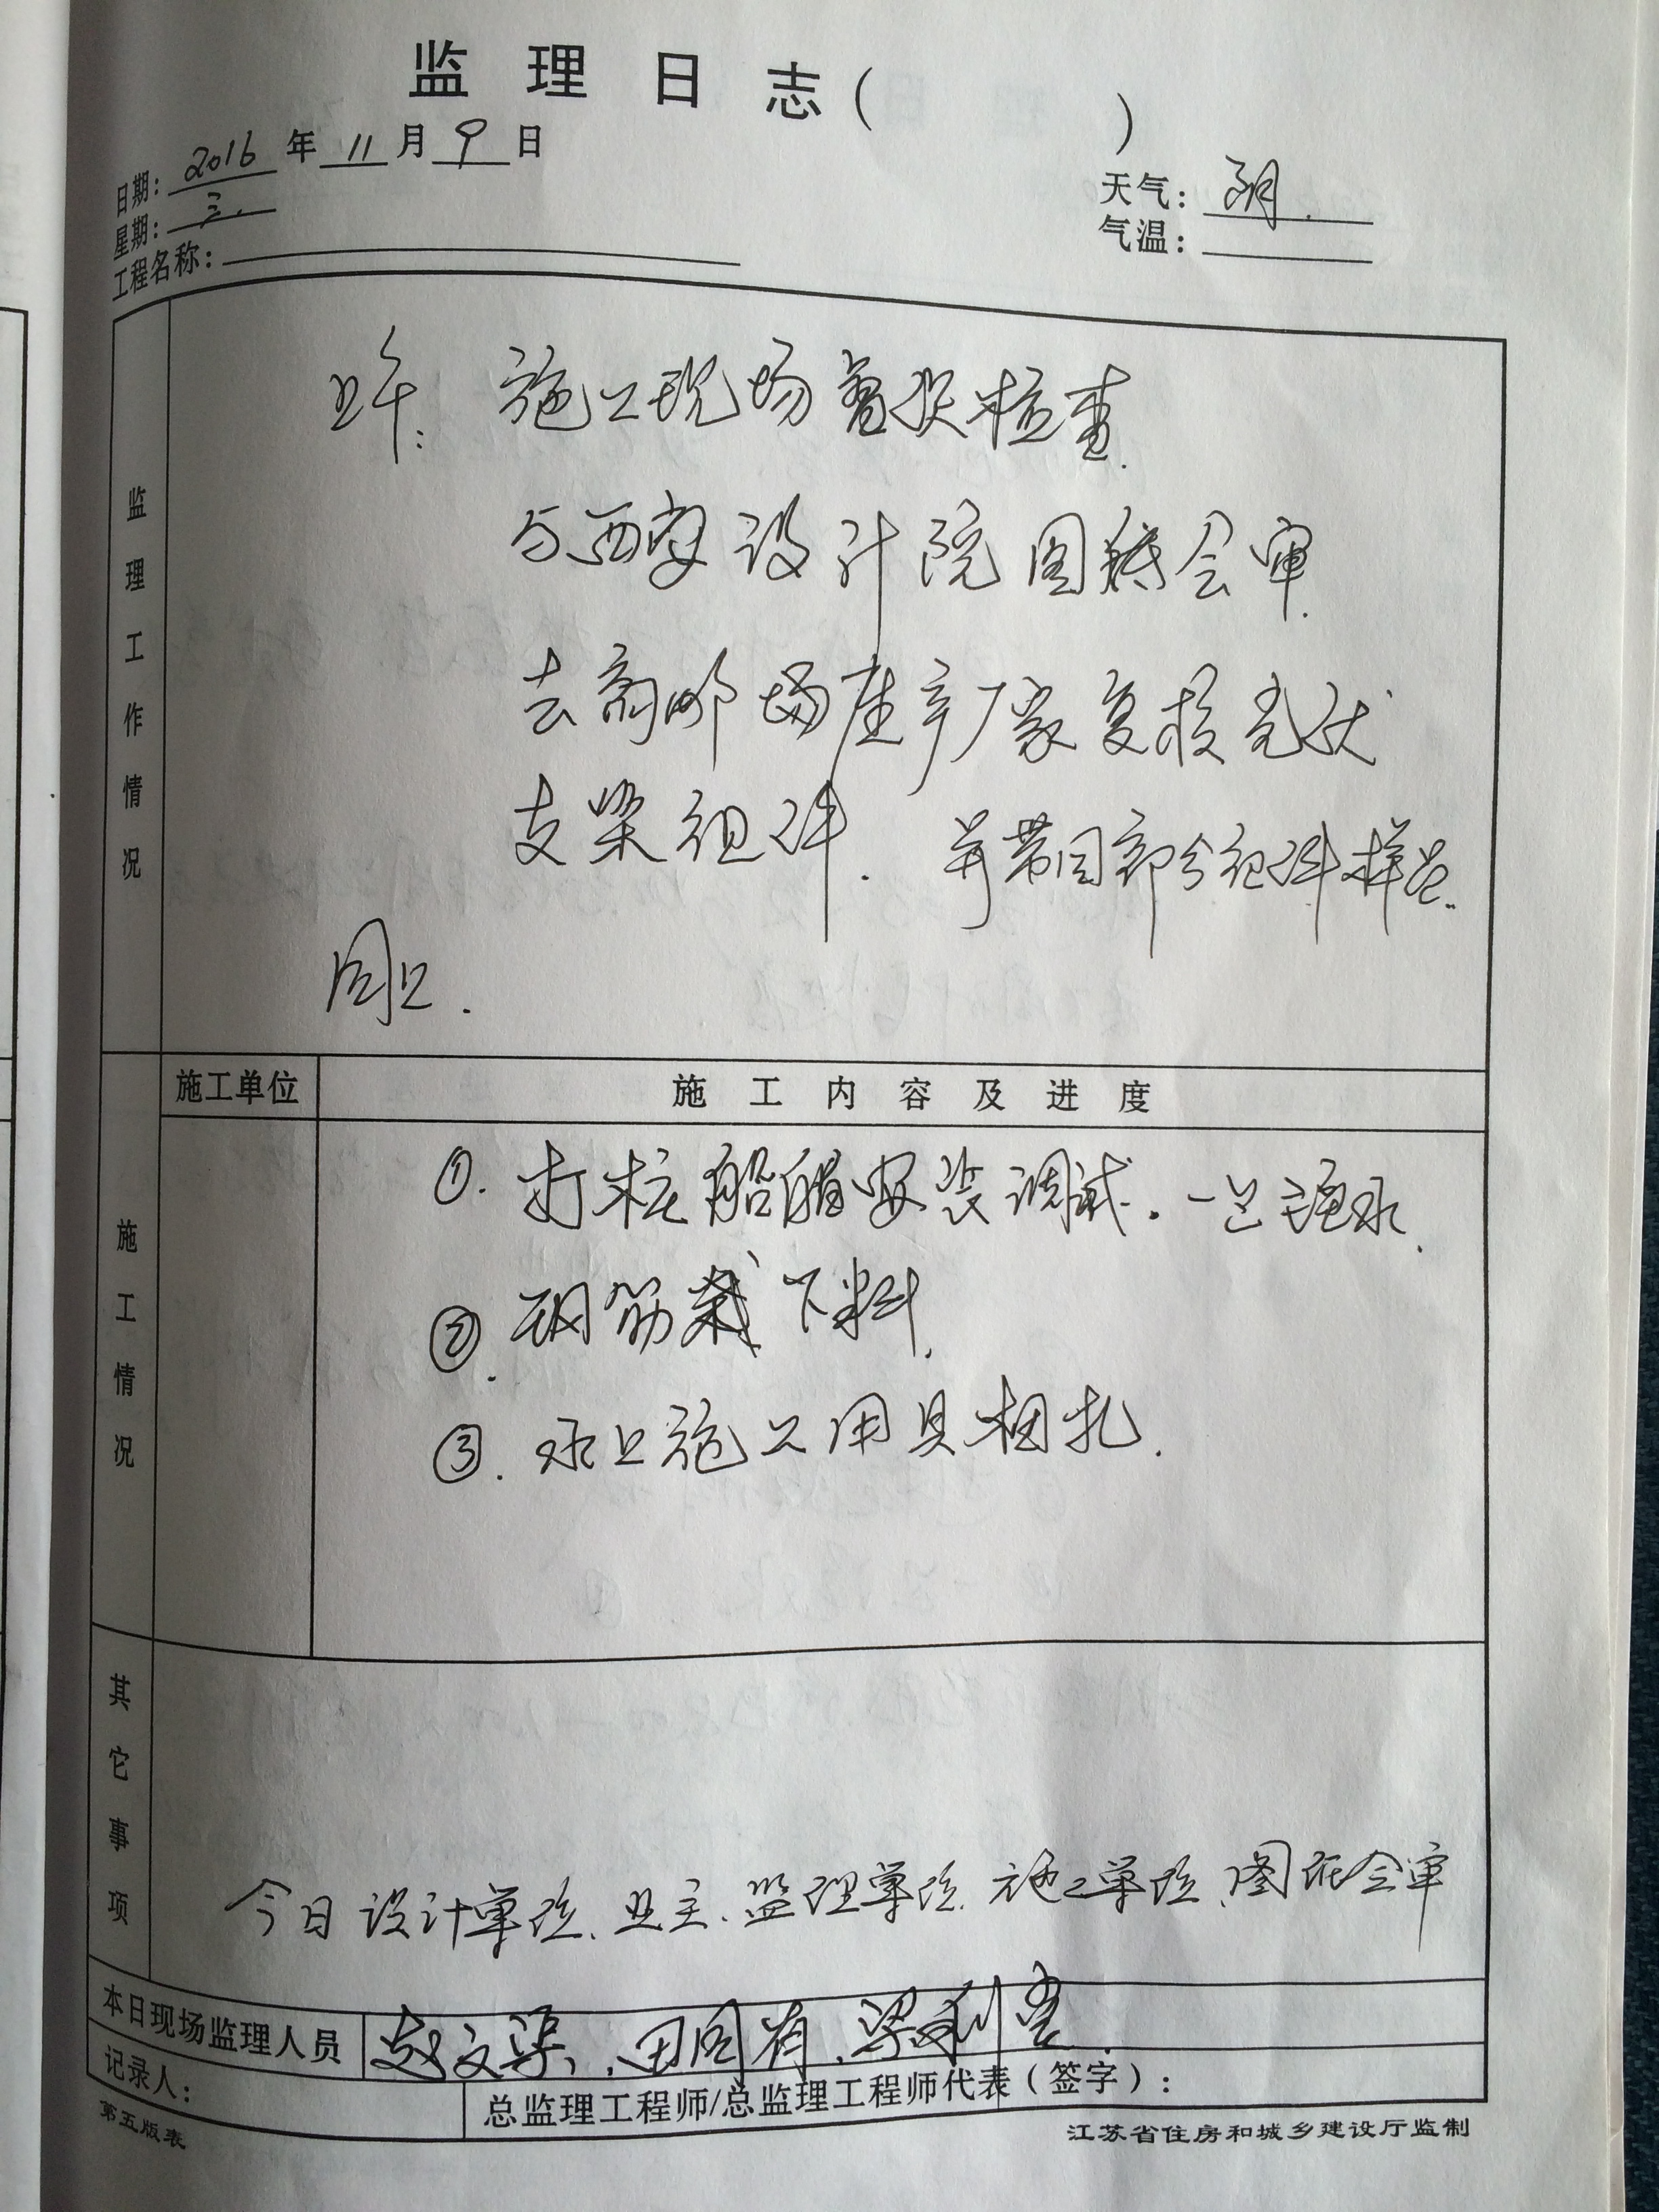 监理日志（ ）
日期：2016年11月9日
星期：三.
天气：阴.
气温：
工程名称：
监理工作情况
上午：施工现场 核查.
与西安设计院图纸会审.
去高邮 生产厂家复核光伏
支架组件. 并带回部分组件样品.
施工单位
施工内容及进度
施工情况
①. 打桩船 安装调试.
②. 钢筋 下料.
③. 水上施工用具捆扎.
其它事项
今日设计单位、业主、监理单位、施工单位、图纸会审
本日现场监理人员
赵文 、田国 、梁利
记录人：
总监理工程师/总监理工程师代表（签字）：
第五版表
江苏省住房和城乡建设厅监制